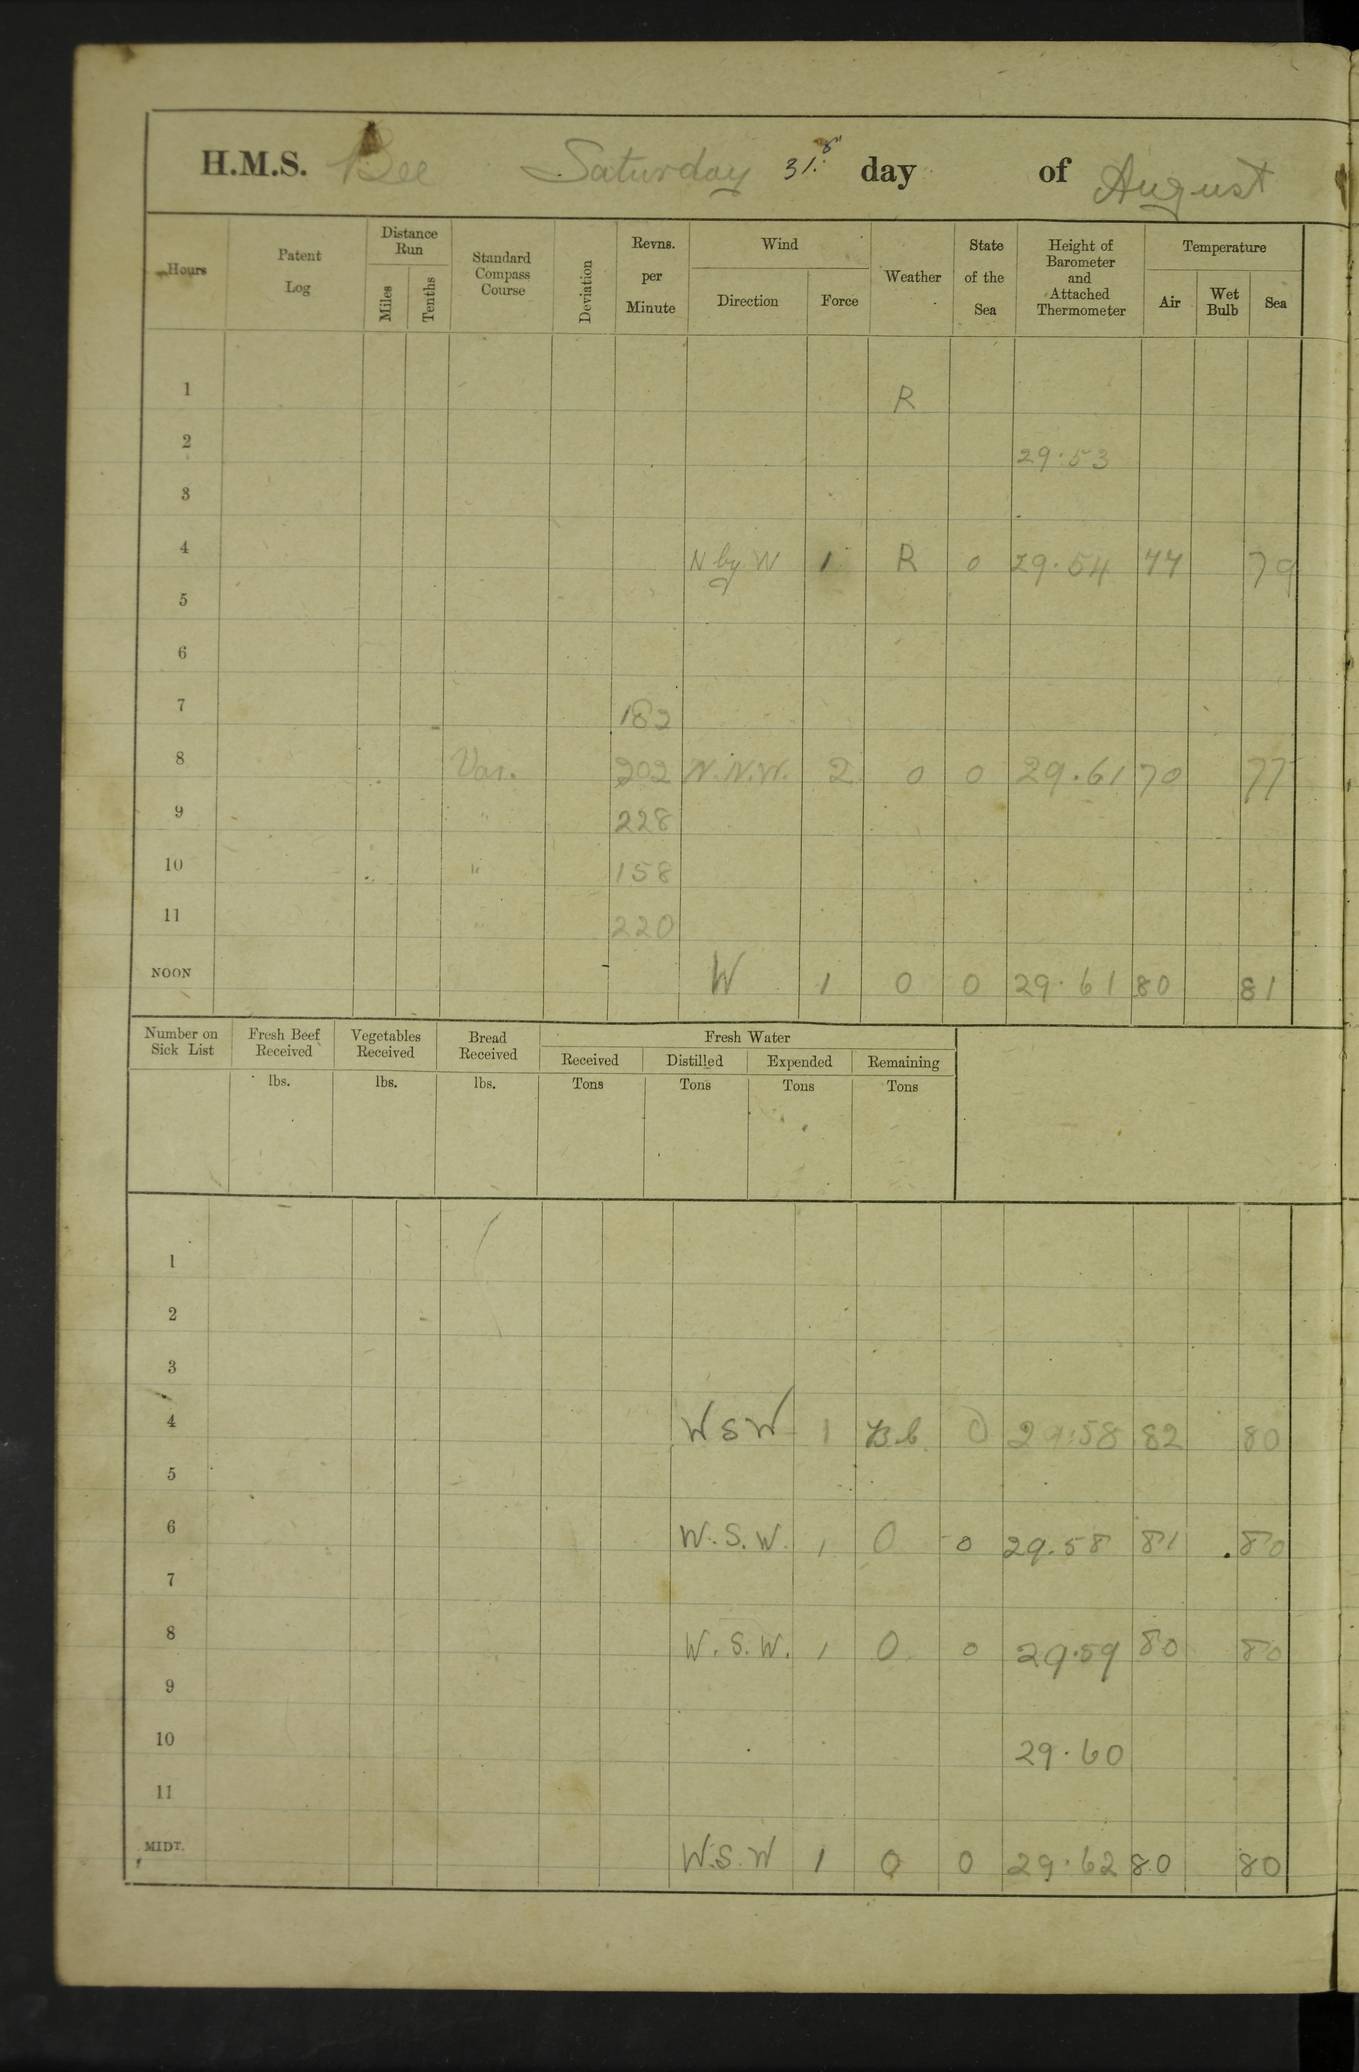 H.M.S. Bee Saturday 31st day of August
Hours Patent Log Distance Run Miles Tenths Standard Compass Course Deviation Revns. per Minute Wind Direction Force Weather State of the Sea Height of Barometer and Attached Thermometer Temperature Air Wet Bulb Sea
1 R
2 29.53
3
4 N by W 1 R 0 29.54 77 79
5
6
7 182
8 Var. 202 N.N.W. 2 0 0 29.61 70 77
9 " 228
10 " 158
11 " 220
NOON W 1 0 0 29.61 80 81
Number on Sick List Fresh Beef Received Vegetables Received Bread Received Fresh Water
Received Distilled Expended Remaining
lbs. lbs. lbs. Tons Tons Tons Tons
1
2
3
4 W S W 1 B.b. 0 29.58 82 80
5
6 W.S.W. 1 0 0 29.58 81 80
7
8 W.S.W. 1 0 0 29.59 80 80
9
10 29.60
11
MIDT. W.S.W 1 0 0 29.62 80 80